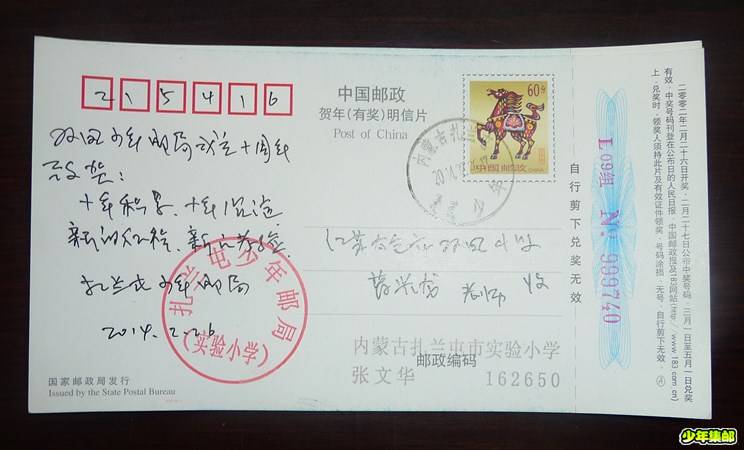 215416
中国邮政
贺年(有奖)明信片
Post of China
60分
中国邮政
CHINA
双凤少年邮局成立十周年
致贺:
十年积累、十年沉淀
新的征程、新的考验
扎兰屯少年邮局
2014.2.26
江苏省太仓市双凤中心小学
老师 收
扎兰屯少年邮局
(实验小学)
内蒙古扎兰屯
国家邮政局发行
Issued by the State Postal Bureau
内蒙古扎兰屯市实验小学
邮政编码
张文华 162650
自行剪下兑奖无效
L09组 No. 999740
二〇〇二年二月二十六日开奖,二月二十七日公布中奖号码,三月一日至五月一日兑奖
有效,中奖号码刊登在公布日的人民日报、中国邮政报及183网站(http://www.183.com.cn/)
上。兑奖时,领奖人须持此片及有效证件领奖,号码涂损、无号、自行剪下无效。
少年集邮